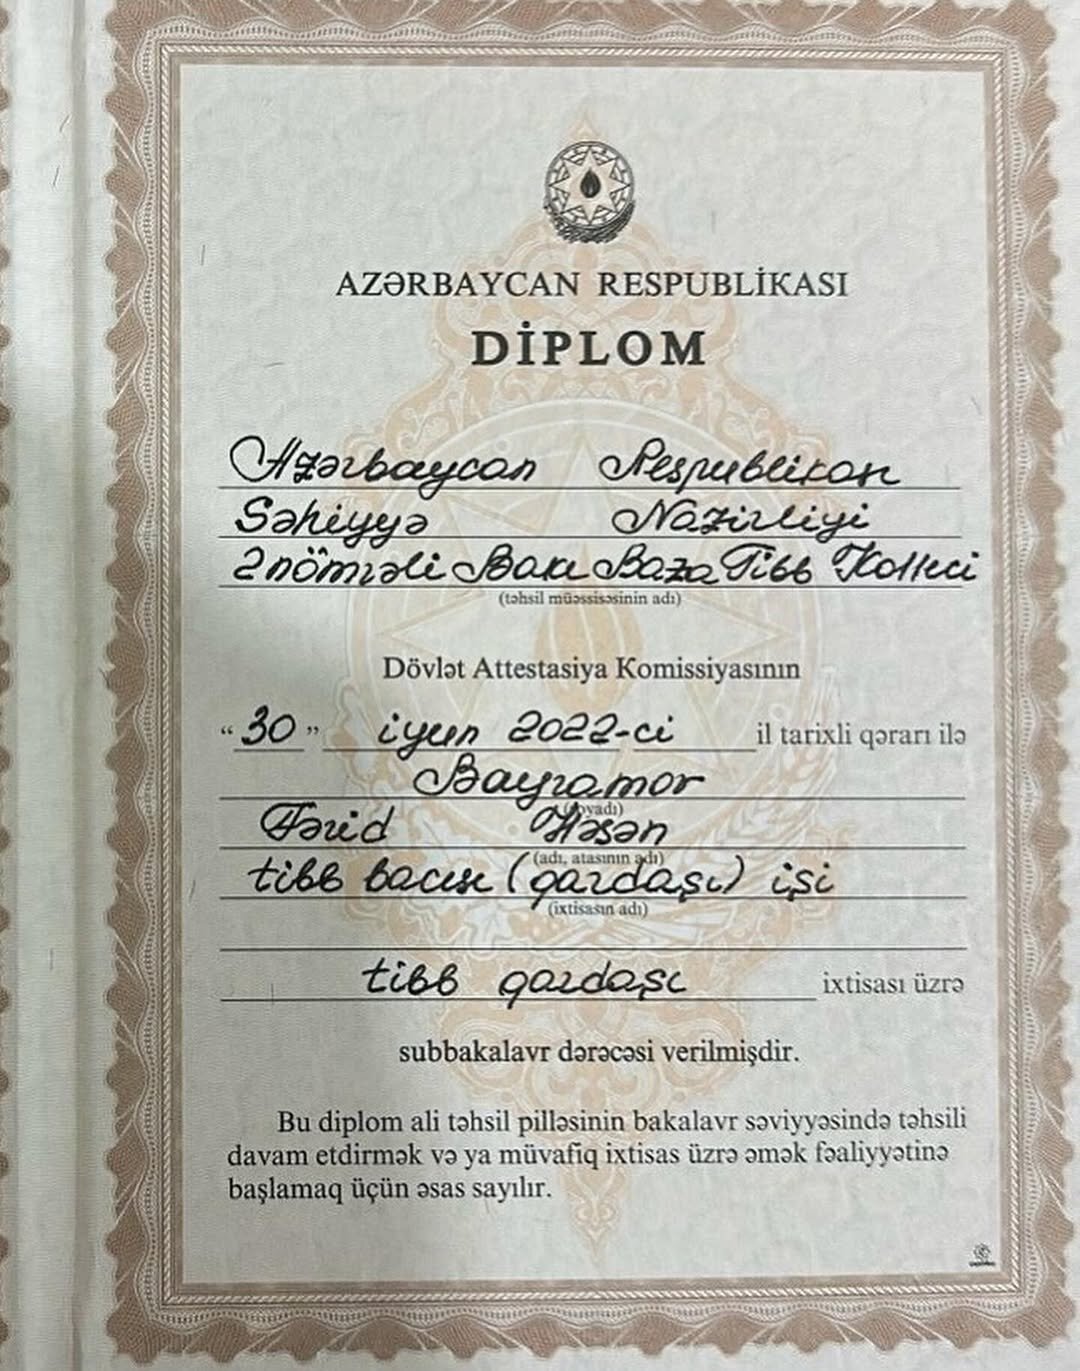 AZƏRBAYCAN RESPUBLİKASI
DİPLOM
Azərbaycan Respublikası
Səhiyyə Nazirliyi
2 nömrəli Bakı Baza Tibb Kolleci
(təhsil müəssisəsinin adı)
Dövlət Attestasiya Komissiyasının
“ 30 ” iyun 2022-ci il tarixli qərarı ilə
Bayramov
(soyadı)
Fərid Həsən
(adı, atasının adı)
tibb bacısı (qardaşı) işi
(ixtisasın adı)
tibb qardaşı ixtisası üzrə
subbakalavr dərəcəsi verilmişdir.
Bu diplom ali təhsil pilləsinin bakalavr səviyyəsində təhsili
davam etdirmək və ya müvafiq ixtisas üzrə əmək fəaliyyətinə
başlamaq üçün əsas sayılır.